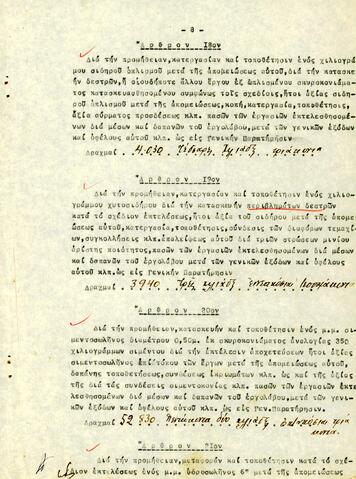 - 8 -
"Αρθρον 18ον
Διά τήν προμήθειαν, κατεργασίαν καί τοποθέτησιν ἑνός χιλιογρά-
μου σιδηροῦ ὁπλισμοῦ μετά τῆς ἀπομειώσεως αὐτοῦ, διά τήν κατασκευ-
ήν δεστρῶν, ἤ οἱουδήποτε ἄλλου ἔργου ἐξ ὡπλισμένου σκυροκονιάμα-
τος κατασκευασθησομένου συμφώνως τοῖς σχεδίοις, ἤτοι ἀξίας σιδη-
ροῦ ὁπλισμοῦ μετά τῆς ἀπομειώσεως, κοπή, κατεργασία, τοποθέτησις,
ἀξία σύρματος προσδέσεως κλπ. πασῶν τῶν ἐργασιῶν ἐκτελεσθησομέ-
νων διά μέσων καί δαπανῶν τοῦ ἐργολάβου, μετά τῶν γενικῶν ἐξόδων
καί ὀφέλους αὐτοῦ κλπ. ὡς εἰς Γενικήν Παρατήρησιν
Δραχμαί 4.030 τριάκοντα
"Αρθρον 19ον
Διά τήν προμήθειαν, κατεργασίαν καί τοποθέτησιν ἑνός χιλιο-
γράμμου χυτοσιδήρου διά τήν κατασκευήν περιβλημάτων δεστρῶν
κατά τό σχέδιον ἐκτελέσεως, ἤτοι ἀξία τοῦ σιδήρου μετά τῆς ἀπομει-
ώσεως αὐτοῦ, κατεργασία, τοποθέτησις, σύνδεσις τῶν διαφόρων τεμα-
χίων, συγκολλήσεις κλπ. ἐπαλείψεως αὐτοῦ διά τριῶν στρώσεων μινίου
ἀρίστης ποιότητος, πασῶν τῶν ἐργασιῶν ἐκτελεσθησομένων διά μέσων
καί δαπανῶν τοῦ ἐργολάβου μετά τῶν γενικῶν ἐξόδων καί ὀφέλους
αὐτοῦ κλπ. ὡς εἰς Γενικήν Παρατήρησιν
Δραχμαί 3940
"Αρθρον 20ον
Διά τήν προμήθειαν, κατασκευήν καί τοποθέτησιν ἑνός μ.μ. σι-
μεντοσωλῆνος διαμέτρου 0,50μ. ἐκ σκυροκονιάματος ἀναλογίας 350
χιλιογράμμων σιμέντου διά τήν ἐπέλεσιν ὑποχετεύσεων ἤτοι ἀξίας
σιμεντοσωλῆνος ἐπιτόπου τῶν ἔργων μετά τῆς ἀπομειώσεως αὐτοῦ,
δαπάνης τοποθετήσεως ἰκριωμάτων κλπ. ὡς καί τῆς ἀξίας
τῆς διά τάς συνδέσεις σιμεντοκονίας κλπ. πασῶν τῶν ἐργασιῶν ἐκτε-
λεσθησομένων διά μέσων καί δαπανῶν τοῦ ἐργολάβου, μετά τῶν γενι-
κῶν ἐξόδων καί ὀφέλους αὐτοῦ κλπ. ὡς εἰς Γεν. Παρατήρησιν.
Δραχμαί 52 930
"Αρθρον 21ον
Διά τήν προμήθειαν, μεταφοράν καί τοποθέτησιν κατά τό σχέ-
διον ἐκτελέσεως ἑνός μ.μ. ὑδροσωλῆνος 6" μετά τῆς ἀπομειώσεως